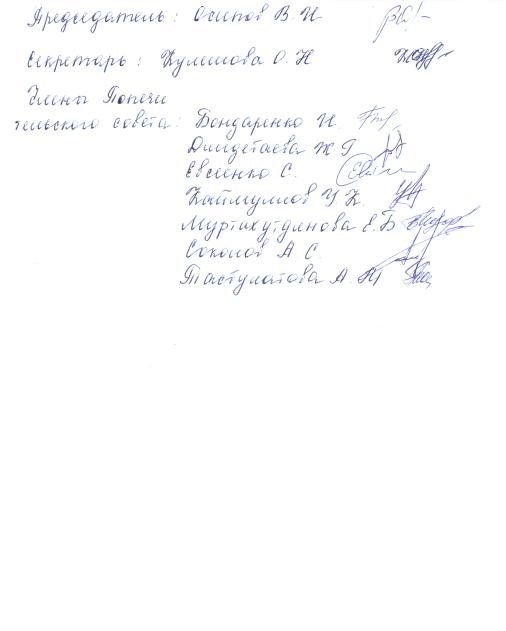 Председатель: Осипов В. И
Секретарь: Кулешова О. Н
Члены Попечи
тельского совета: Бондаренко И.
Дилдетаева Ж Г
Евсеенко С.
Каймулшов У. К.
Муртахутдинова Е. Б
Соколов А С.
Тастулатова А. М